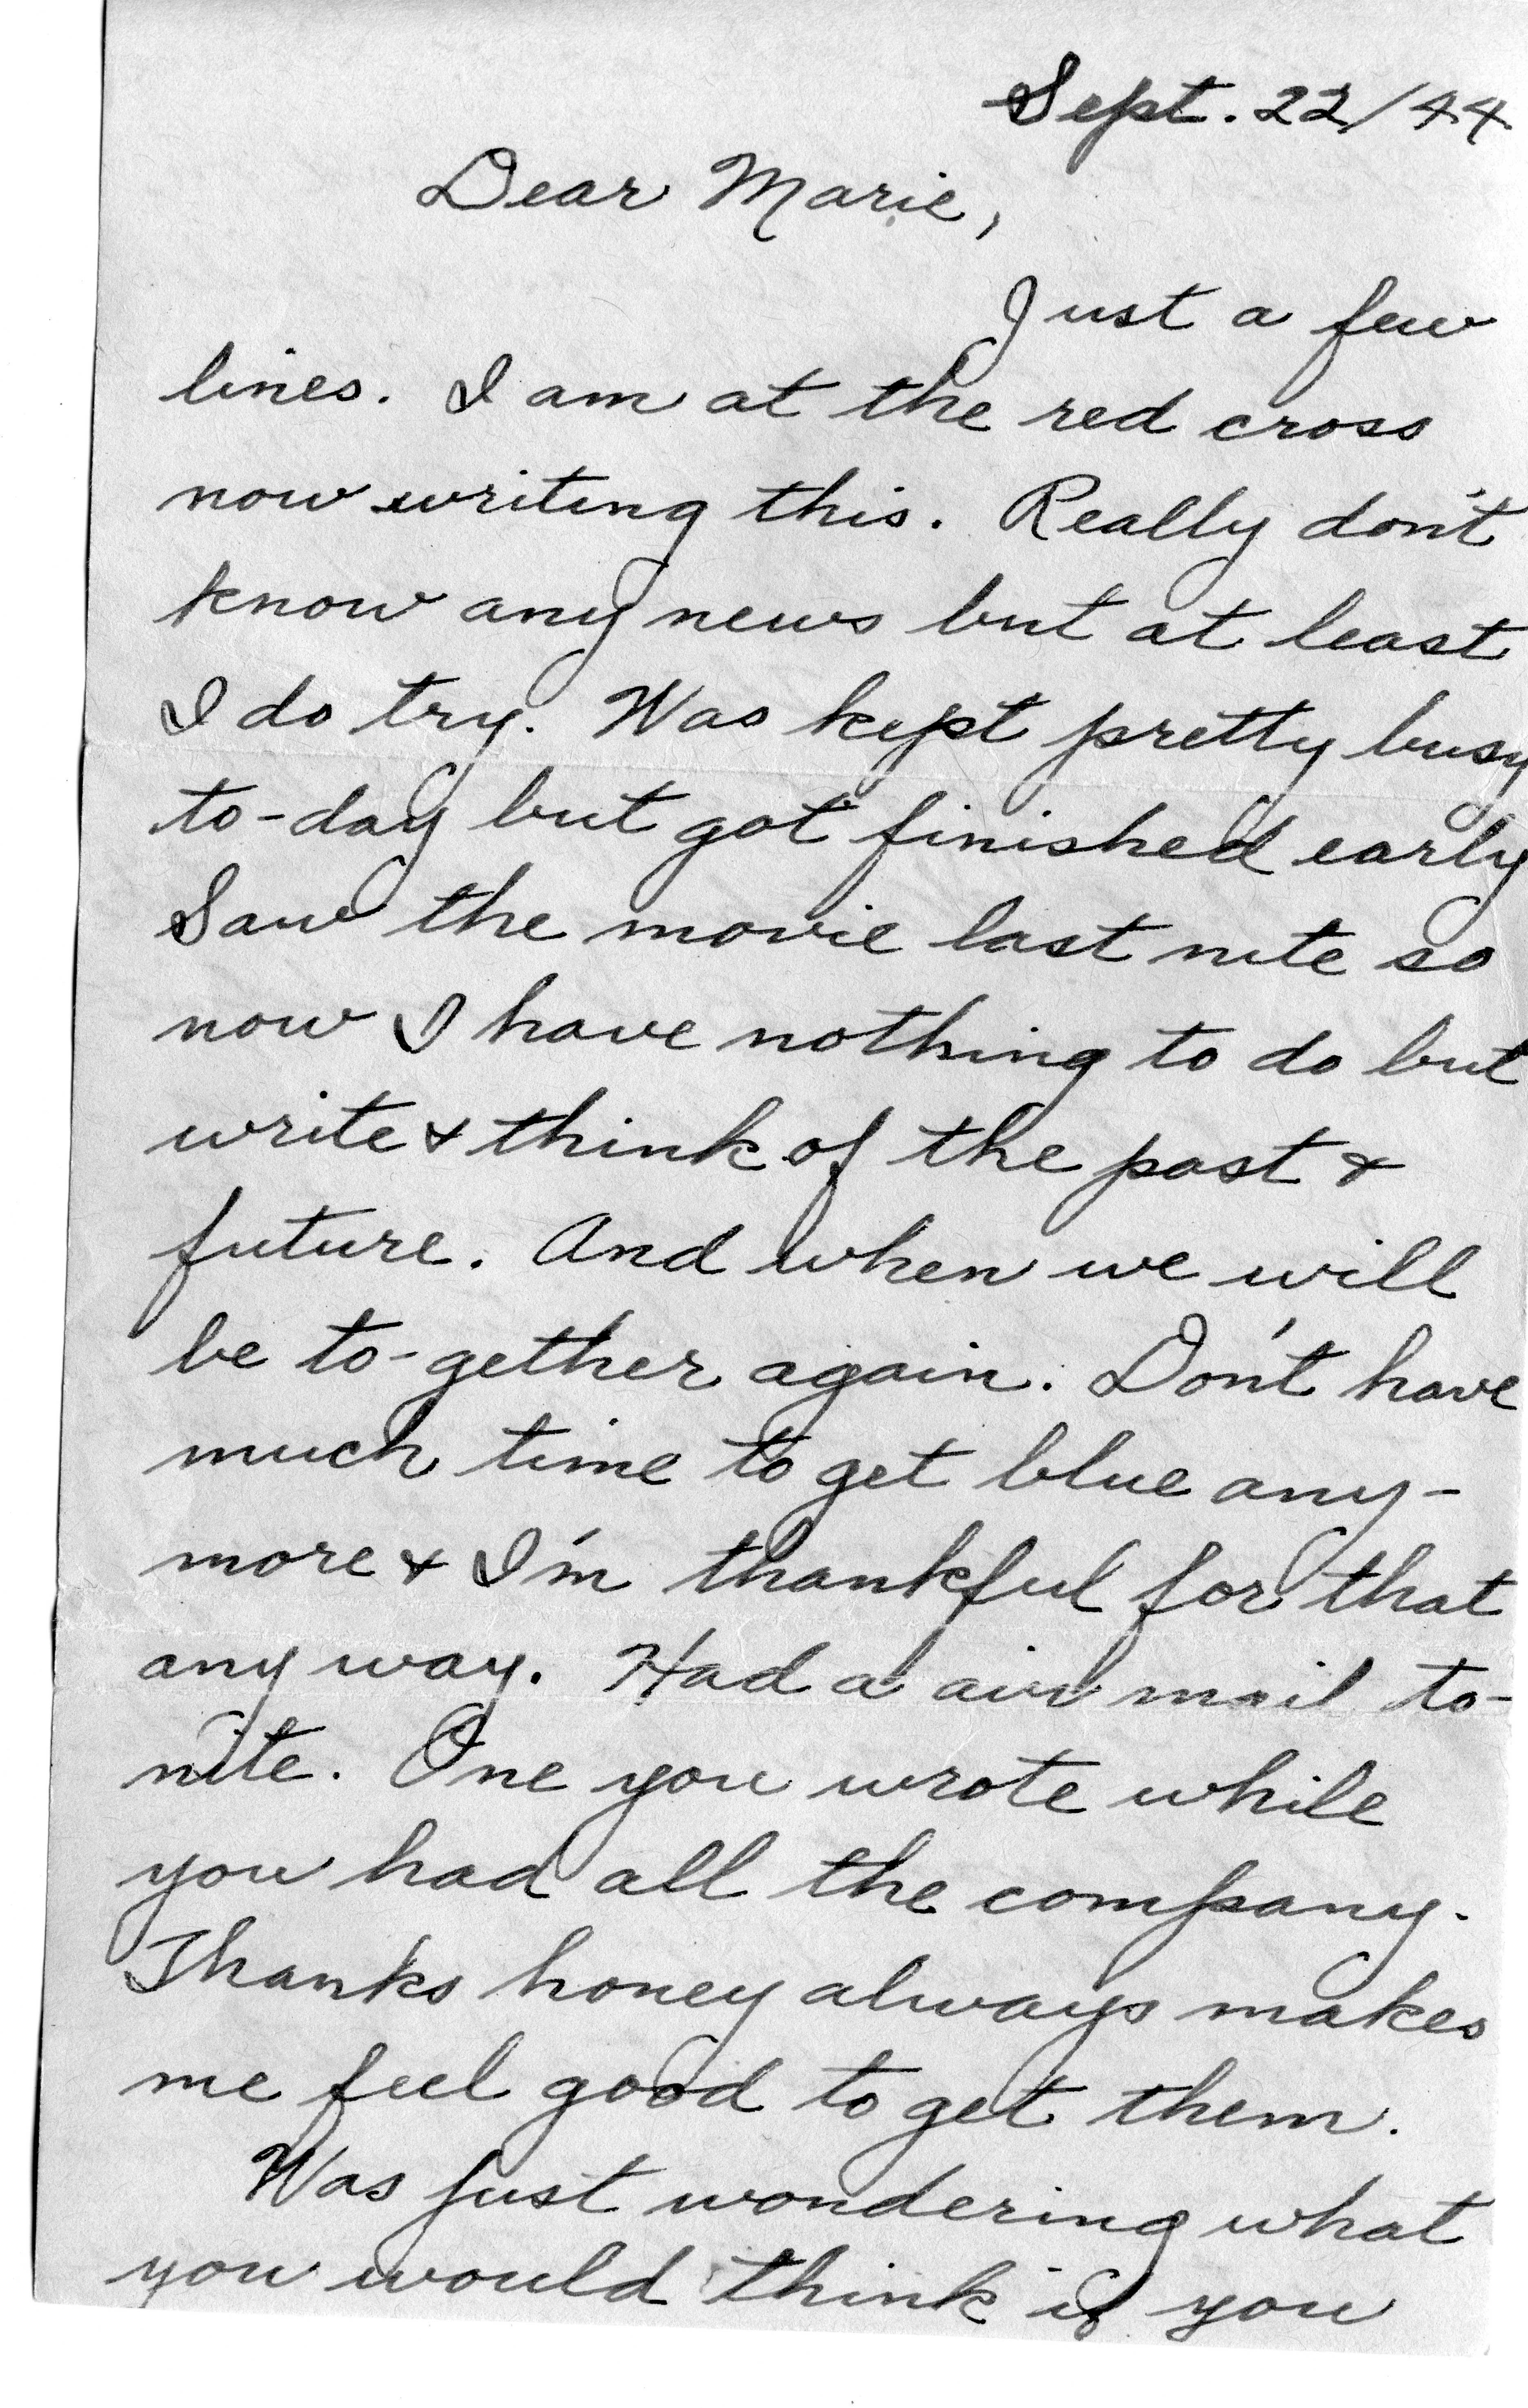 Sept. 22/44
Dear Marie,
Just a few
lines. I am at the red cross
now writing this. Really don't
know any news but at least
I do try. Was kept pretty busy
to-day but got finished early
Saw the movie last nite so
now I have nothing to do but
write & think of the past &
future. And when we will
be to-gether again. Don't have
much time to get blue any-
more & I'm thankful for that
any way. Had a air mail to-
nite. One you wrote while
you had all the company.
Thanks honey always makes
me feel good to get them.
Was just wondering what
you would think if you